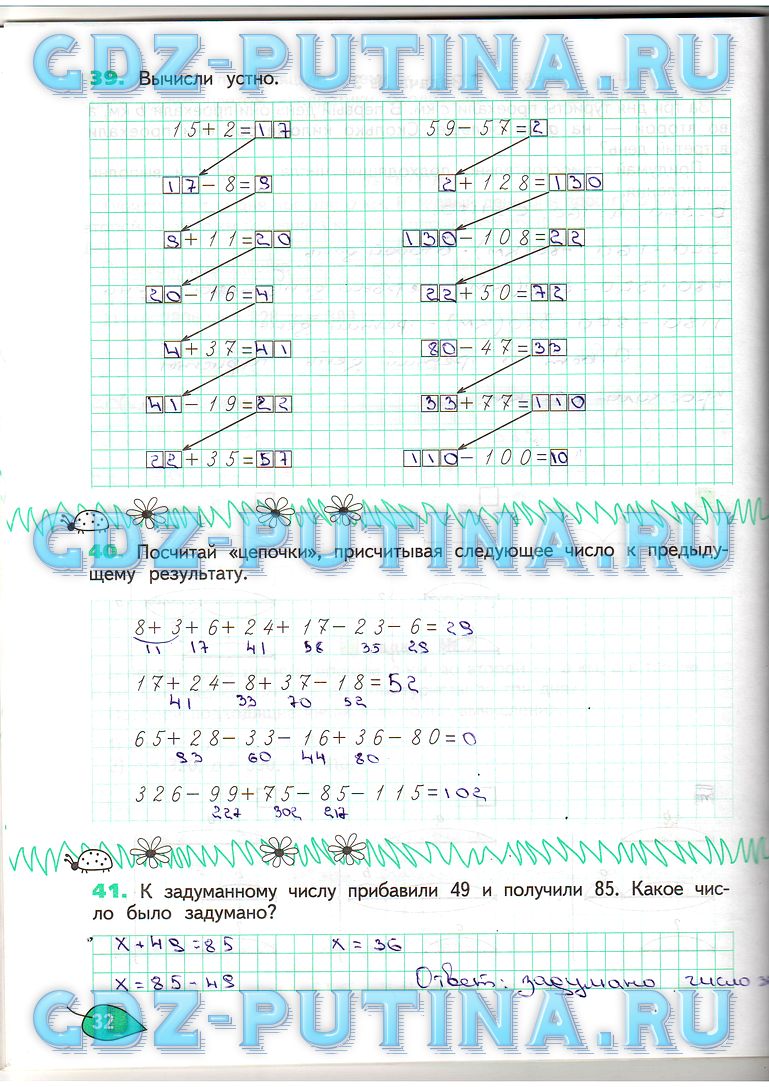 GDZ-PUTINA.RU
39. Вычисли устно.
15+2=17
17-8=9
9+11=20
20-16=4
4+37=41
41-19=22
22+35=57
59-57=2
2+128=130
130-108=22
22+50=72
80-47=33
33+77=110
110-100=10
GDZ-PUTINA.RU
40. Посчитай «цепочки», присчитывая следующее число к предыду-
щему результату.
8+3+6+24+17-23-6=29
11 17 41 58 35 29
17+24-8+37-18=52
41 33 70 52
65+28-33-16+36-80=0
93 60 44 80
326-99+75-85-115=102
227 302 217
41. К задуманному числу прибавили 49 и получили 85. Какое чис-
ло было задумано?
x+49=85 x=36
x=85-49 Ответ: задумано число
32
GDZ-PUTINA.RU